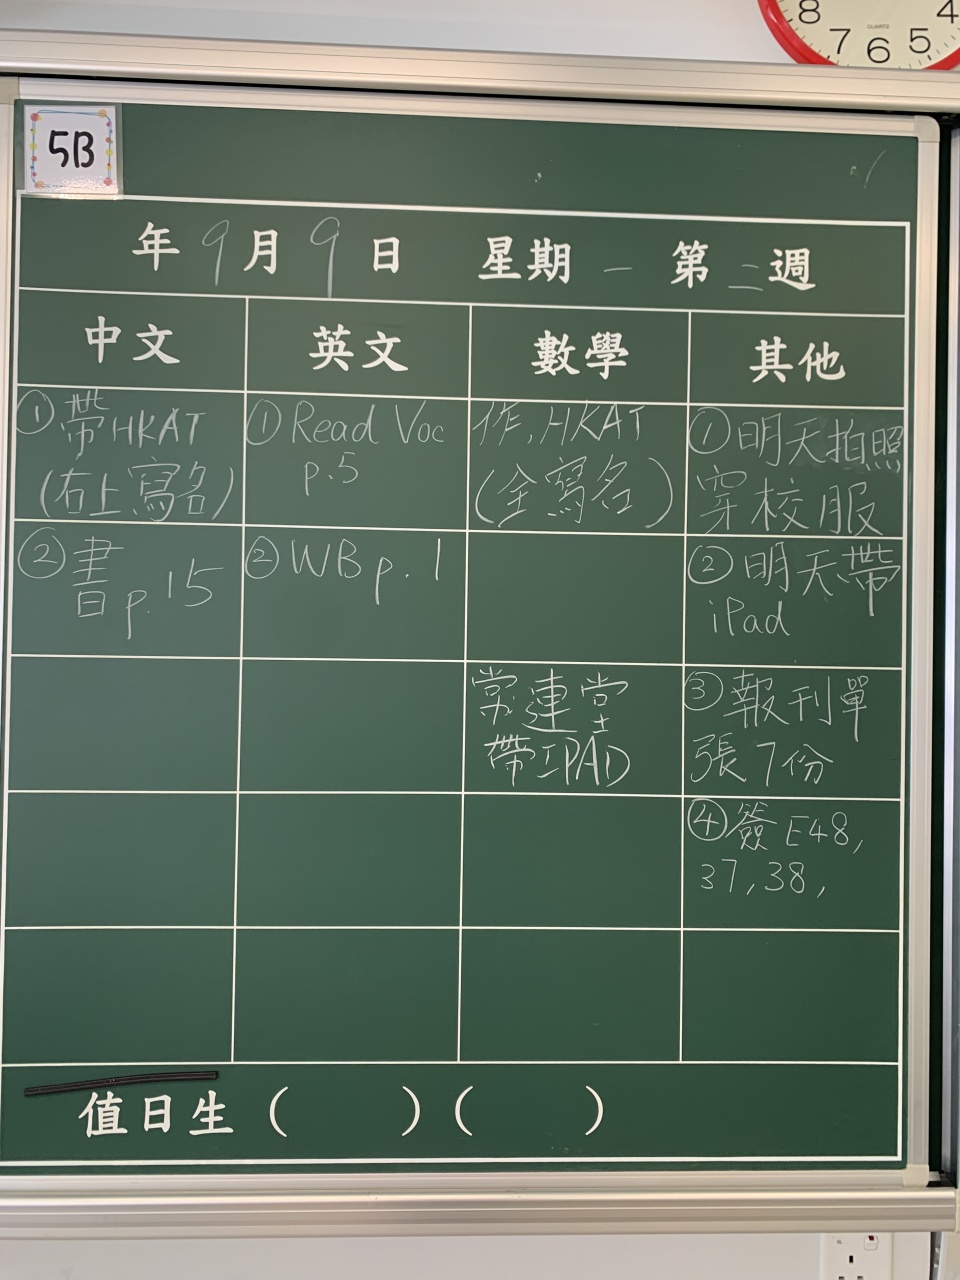 8
7
6
5
4
QUARTZ
5B
年9月9日 星期一 第二週
中文
英文
數學
其他
①帶HKAT
(右上寫名)
①Read Voc
p.5
作,HKAT
(全寫名)
①明天拍照
穿校服
②書p.15
②WB p.1
②明天帶
iPad
常:連堂
帶IPAD
③報刊單
張7份
④簽E48,
37,38,
值日生( )( )